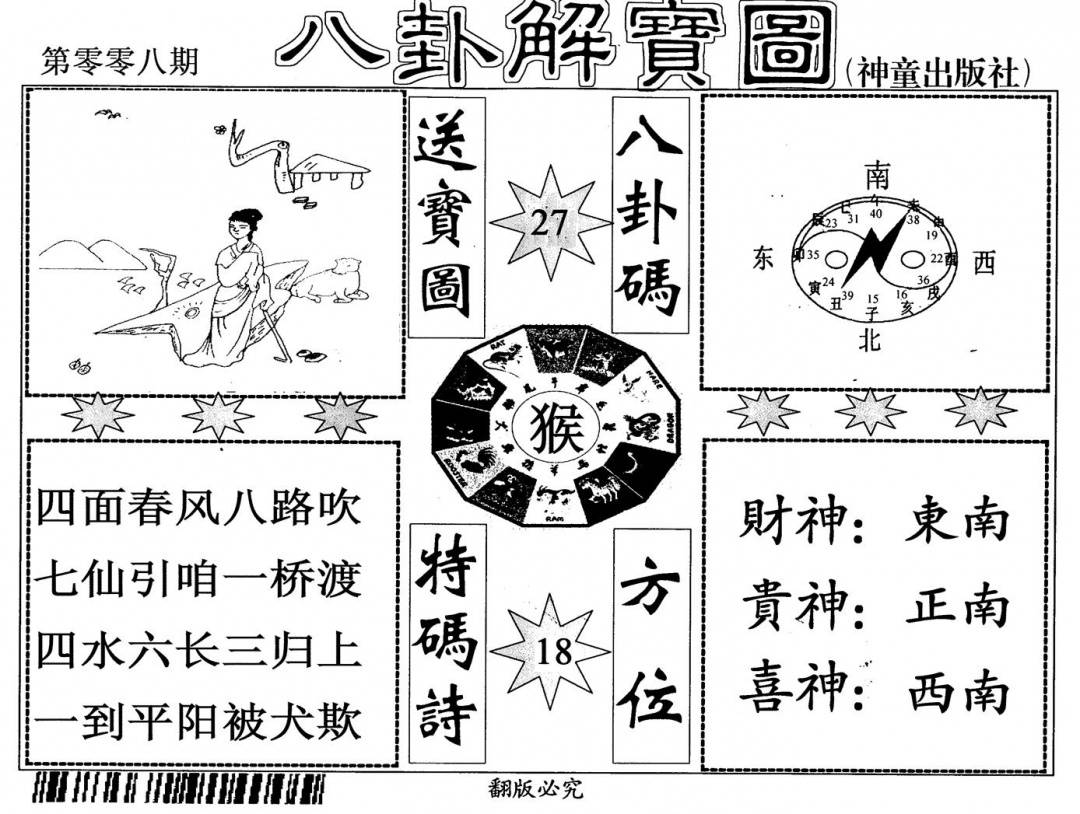 第零零八期
八卦解寶圖
(神童出版社)
送寶圖
27
八卦碼
南
午
巳
未
40
31
38
辰
23
申
19
东
卯
35
22
酉
西
寅
24
36
戌
丑
39
15
16
亥
子
北
RAT
HARE
DRAGON
ROOSTER
RAM
猴
四面春风八路吹
七仙引咱一桥渡
四水六长三归上
一到平阳被犬欺
特碼詩
18
方位
財神：東南
貴神：正南
喜神：西南
翻版必究